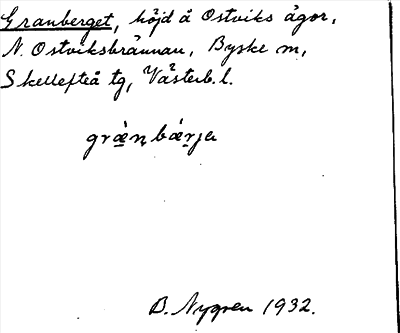 Granberget, höjd å Ostviks ägor,
N. Ostviksbrännan, Byske sn,
Skellefteå tg, Västerb. l.
græ̀nbǽrja
B. Nygren 1932.